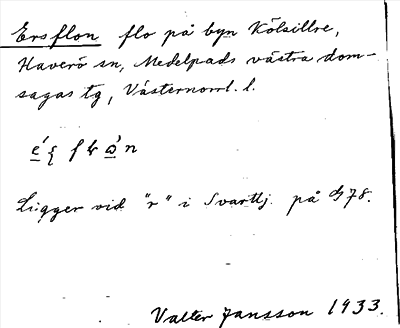 Ersflon flo på byn Kölsillre,
Haverö sn, Medelpads västra dom-
sagas tg, Västernorrl. l.
Ligger vid "r" i Svarttj. på G78.
Valter Jansson 1933.